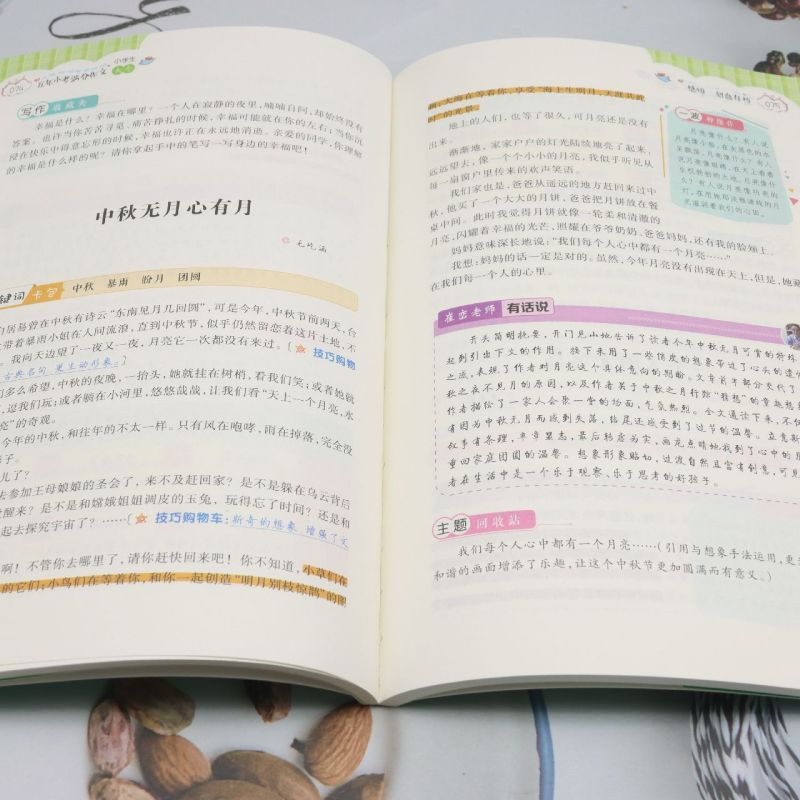 074
五年小考满分作文
小学生
大全
写作 收藏夹
幸福是什么?幸福在哪里?一个人在寂静的夜里,喃喃自问,却始终没有
答案。也许当你苦苦寻觅,痛苦挣扎的时候,幸福可能就在你的左右;当你沉
浸在快乐中得意忘形的时候,幸福也许正在永远地消逝。亲爱的同学,你理解
的幸福是什么样的呢?请你拿起手中的笔写一写身边的幸福吧!
中秋无月心有月
毛屹涵
键词 卡包 中秋 暴雨 盼月 团圆
居易曾在中秋有诗云“东南见月几回圆”,可是今年,中秋节前两天,台
带着暴雨小姐在人间流浪,直到中秋节,似乎仍然留恋着这片土地,不
。我向天边望了一夜又一夜,月亮它一次都没有来过。[技巧购物
古典名句,更生动形象。]
们多么希望,中秋的夜晚,一抬头,她就挂在树梢,看我们笑;或者她就
,逗我们玩;或者躺在小河里,悠悠哉哉,让我们看“天上一个月亮,水
亮”的奇观。
今年的中秋,和往年的不太一样。只有风在咆哮,雨在掉落,完全没
样子。
儿了?
去参加王母娘娘的圣会了,来不及赶回家?是不是躲在乌云背后
醒来?是不是和嫦娥姐姐调皮的玉兔,玩得忘了时间?还是和
起去探究宇宙了?……[技巧购物车:新奇的想象,增强了文
啊!不管你去哪里了,请你赶快回来吧!你不知道,小草们在
的它们;小鸟们在等着你,和你一起创造“明月别枝惊鹊”的图
感悟
075
大海在等着你,享受“海上生明月,天涯共此
时”的光景。
地上的人们,也等了很久,可月亮还是没有
出来。
渐渐地,家家户户的灯光陆续地亮了起来,
远远望去,像一个个小小的月亮,我似乎听见从
每一扇窗户里传来的欢声笑语。
我们家也是,爸爸从遥远的地方赶回来过中
秋,他买了一个大大的月饼,爸爸把月饼放在餐
桌中间。此时我觉得月饼就像一轮柔和清澈的
月亮,闪耀着幸福的光芒,照耀在爷爷奶奶、爸爸妈妈,还有我的脸颊上。
妈妈意味深长地说:“我们每个人心中都有一个月亮……”
我想:妈妈的话一定是对的。虽然,今年月亮没有出现在天上,但是,她藏
在我们每一个人的心里。
月亮像什么?有人说
崔峦老师 有话说
开头简明扼要,开门见山地告诉了读者今年中秋无月可赏的特殊
起到引出下文的作用。接下来用了一些俏皮的想象带过了心头的遗憾
之感,表现了作者对月亮这个具体意向的期盼。文章前半部分交代了
秋之夜不见月的原因,以及作者关于中秋之月行踪“猜想”的童趣想
作者描绘了一家人会聚一堂的场面,气氛热烈。全文通读下来,不仅
有因为中秋无月而感到失落,结尾还感受到了过节的温馨。立意新
叙事有条理,卒章显志,最后转虚为实,画龙点睛地找到了心中的月
重回家庭团圆的温馨。想象形象贴切,过渡自然且富有创意,可见
者在生活中是一个乐于观察、乐于思考的好孩子。
主题 回收站
我们每个人心中都有一个月亮……(引用与想象手法运用,更
和谐的画面增添了乐趣,让这个中秋节更加圆满而有意义。)